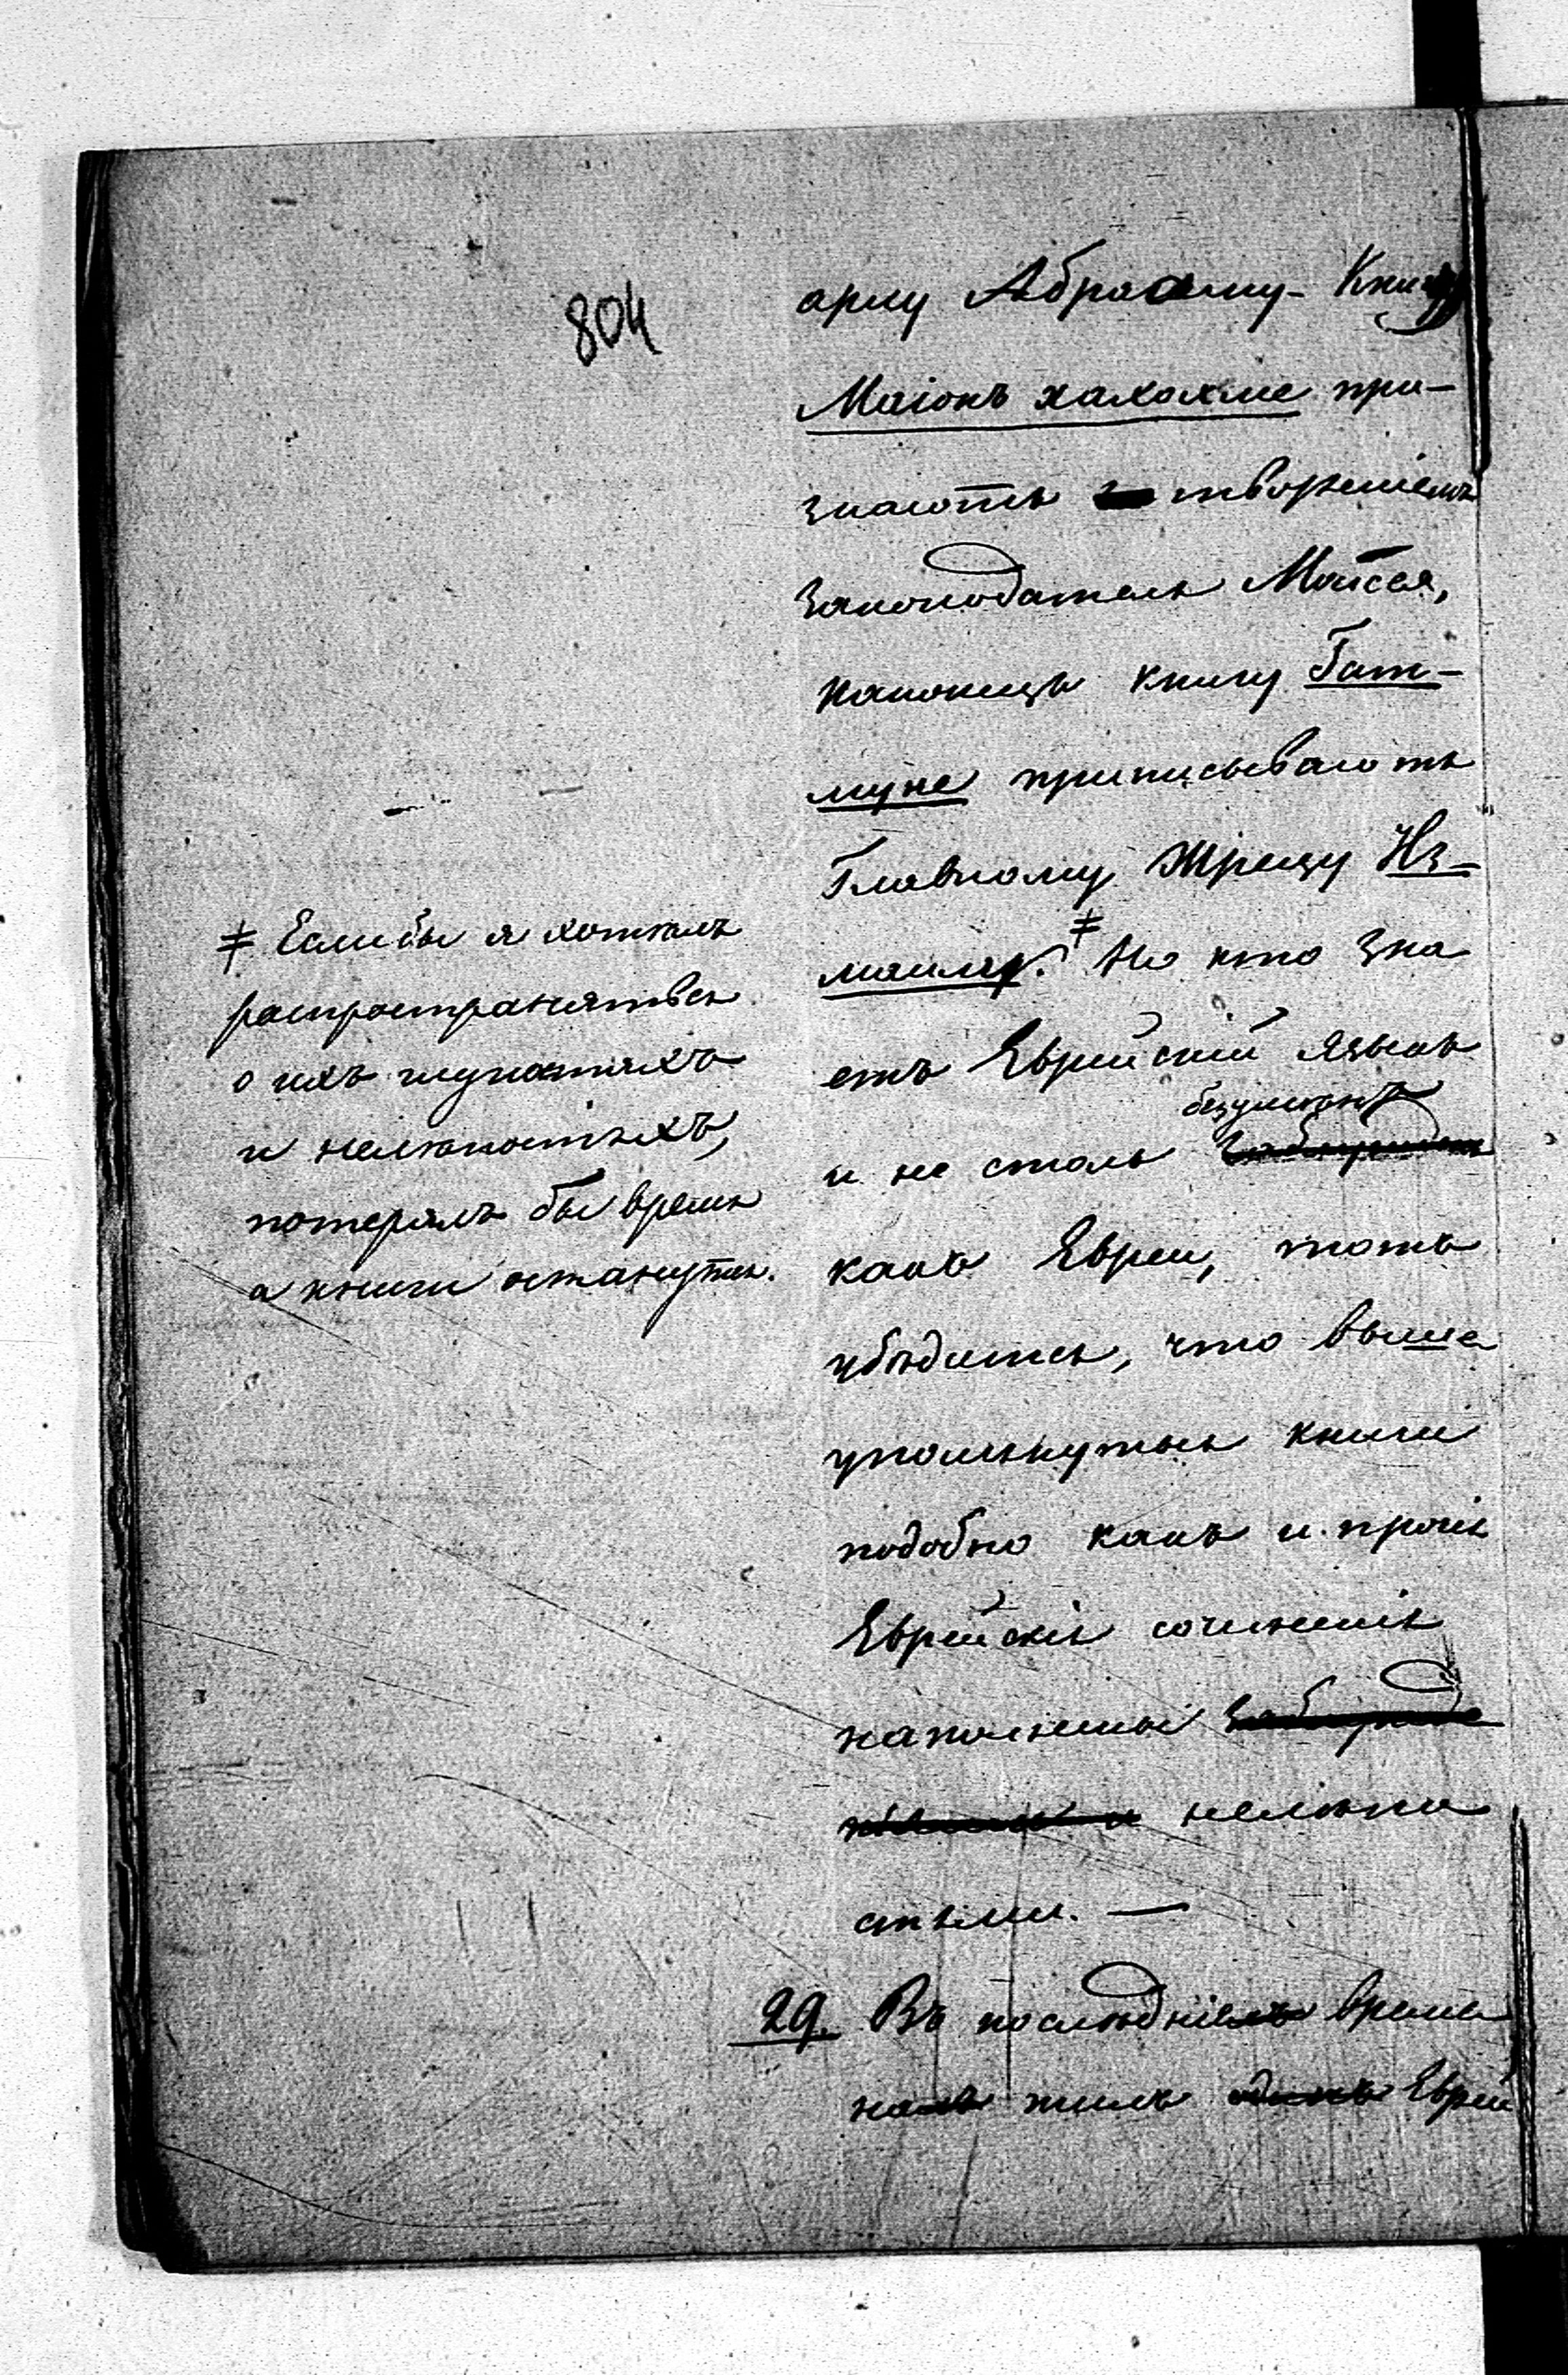 804
арху Абрааму. Книгу
Маіонъ хахохме при-
знаютъ твореніемъ
законодателя Моѵсея,
наконецъ книгу Гат-
муне приписываютъ
Главному Жрецу Из-
маилу. ≠ Но кто зна
етъ Еврейскій языкъ
безуменъ
и не столь
какъ Евреи, тотъ
убѣдится, что выше
упомянутыя книги
подобно какъ и прочія
Еврейскія сочиненія
наполнены
нелѣпо
стями. —
29. Въ послѣднія време
на жилъ одинъ Еврей
≠ Если бы я хотѣлъ
распространяться
о ихъ глупостяхъ
и нелѣпостяхъ,
потерялъ бы время
а книги останутся.